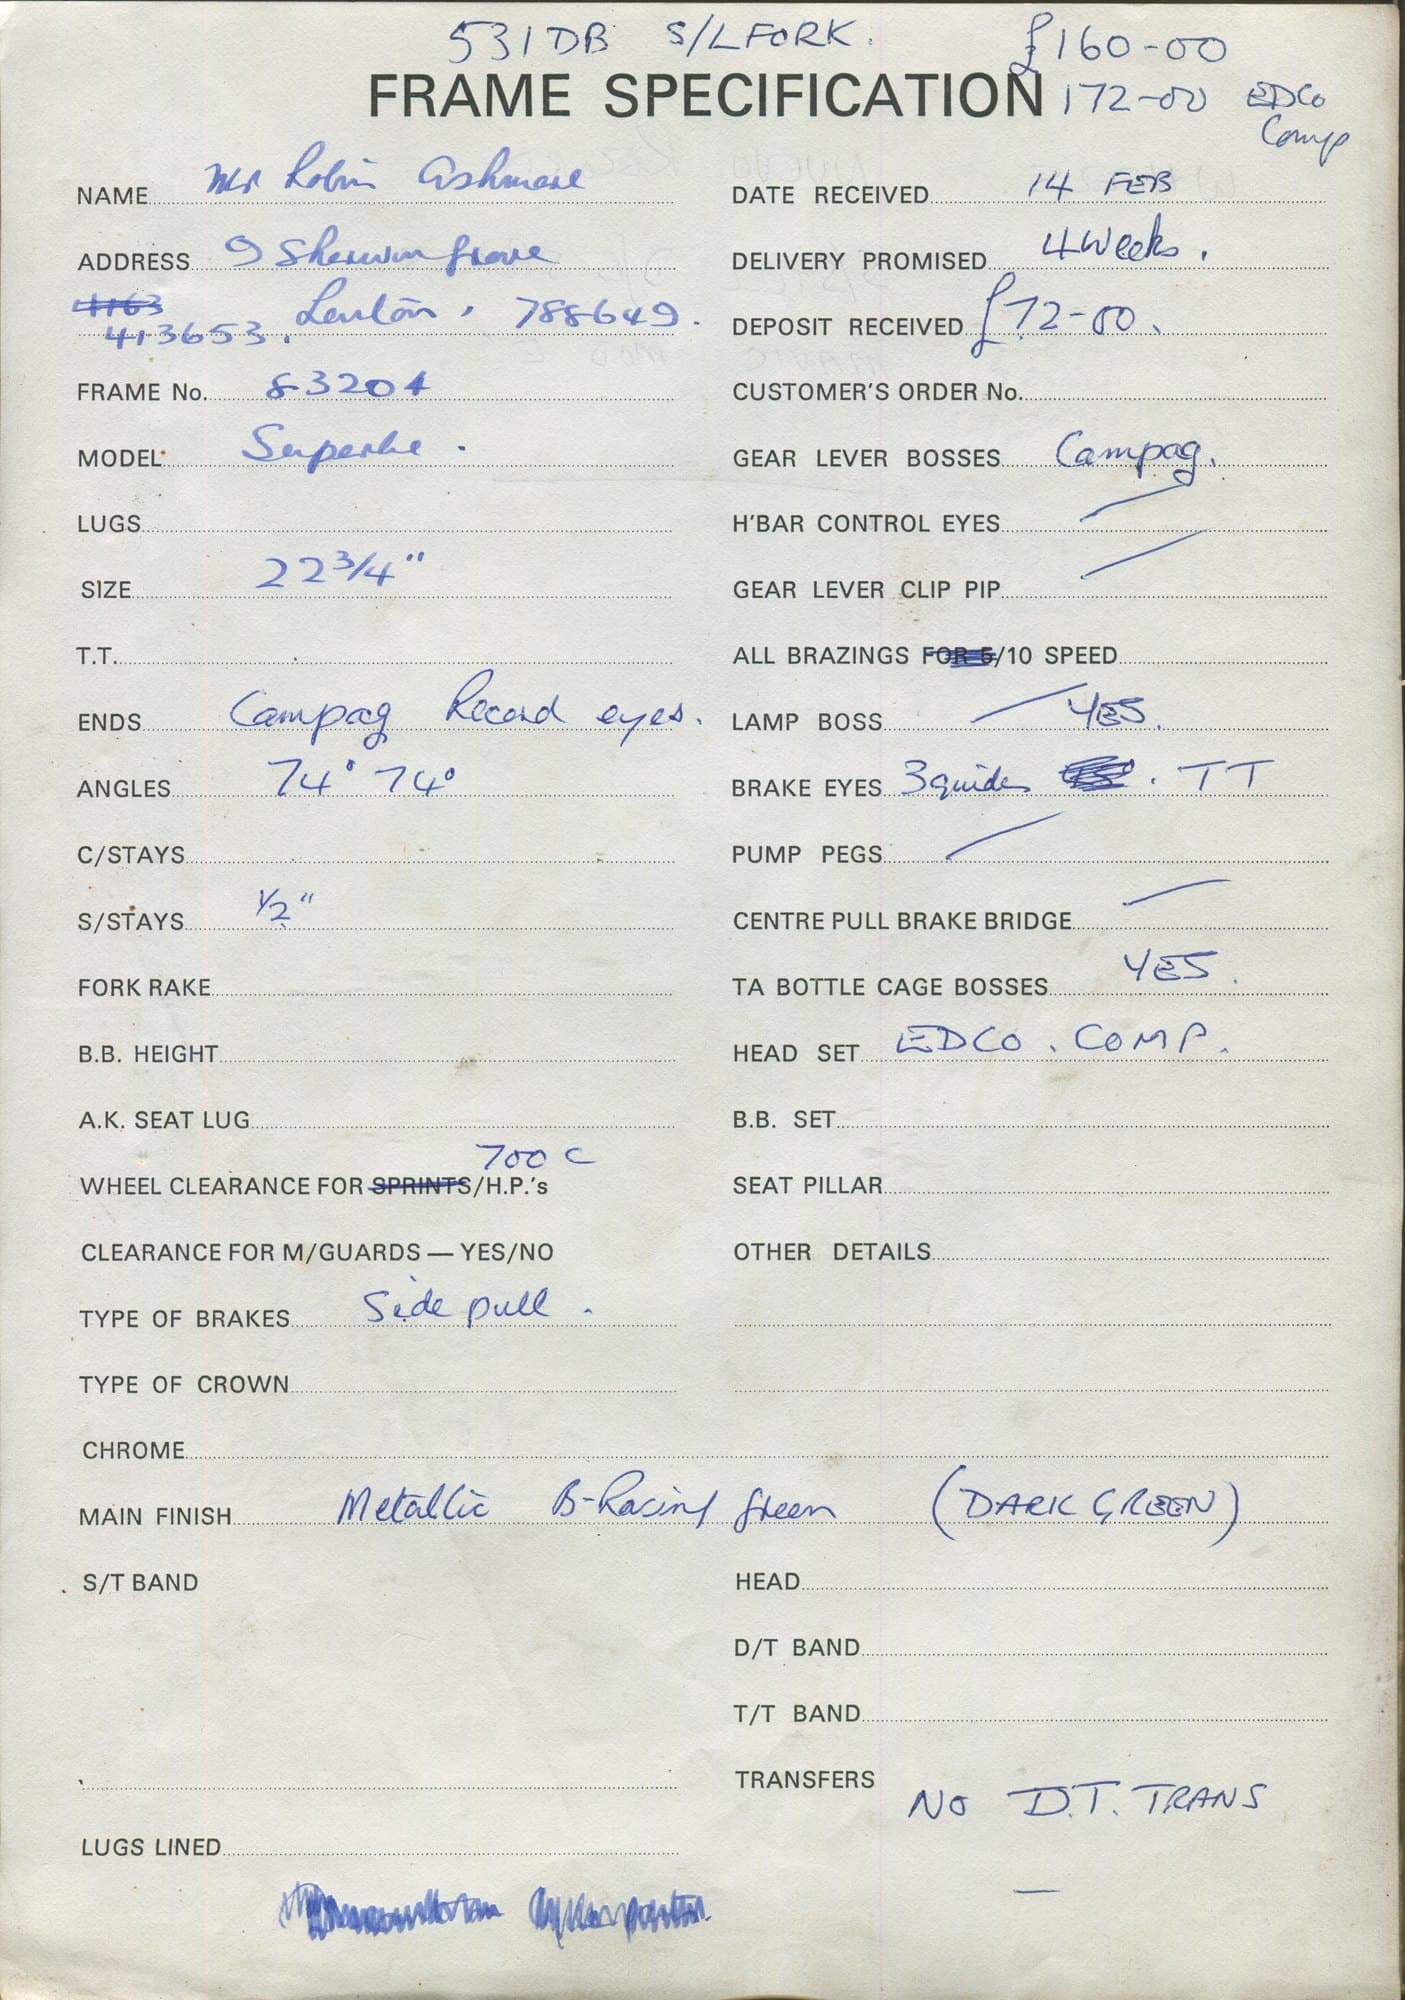 531DB S/L FORK. £160-00
FRAME SPECIFICATION 172-00 EDCO
Comp
NAME Mr Robin Ashmore
ADDRESS 9 Sherwin Grove
4163 Lenton, 788649.
413653.
FRAME No. 83204
MODEL Superbe.
LUGS
SIZE 22 3/4"
T.T.
ENDS Campag Record eyes.
ANGLES 74° 74°
C/STAYS
S/STAYS 1/2"
FORK RAKE
B.B. HEIGHT
A.K. SEAT LUG
700 C
WHEEL CLEARANCE FOR SPRINTS/H.P.'s
CLEARANCE FOR M/GUARDS — YES/NO
TYPE OF BRAKES Side pull.
TYPE OF CROWN
DATE RECEIVED 14 FEB
DELIVERY PROMISED 4 Weeks.
DEPOSIT RECEIVED £72-00.
CUSTOMER'S ORDER No.
GEAR LEVER BOSSES Campag.
H'BAR CONTROL EYES
GEAR LEVER CLIP PIP
ALL BRAZINGS FOR 5/10 SPEED
LAMP BOSS YES.
BRAKE EYES 3 guides . TT
PUMP PEGS
CENTRE PULL BRAKE BRIDGE
TA BOTTLE CAGE BOSSES YES.
HEAD SET EDCO. COMP.
B.B. SET
SEAT PILLAR
OTHER DETAILS
CHROME
MAIN FINISH Metallic B-Racing green (DARK GREEN)
S/T BAND
LUGS LINED
HEAD
D/T BAND
T/T BAND
TRANSFERS NO D.T. TRANS